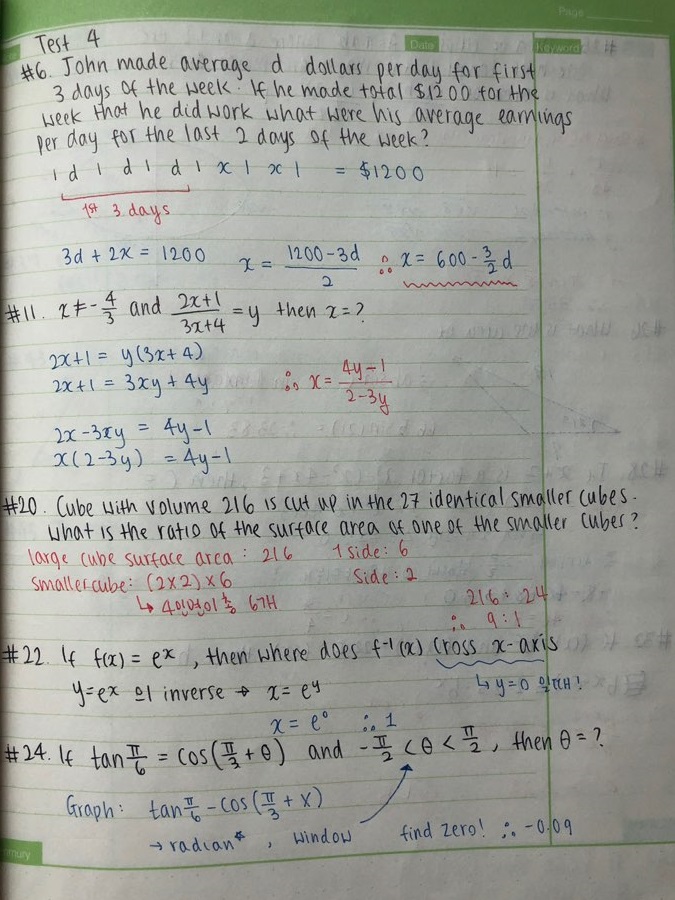 Page
Date
Keyword
Test 4
#6. John made average d dollars per day for first
3 days of the week. If he made total $1200 for the
week that he did work what were his average earnings
per day for the last 2 days of the week?
| d | d | d | x | x | = $1200
1st 3 days
3d + 2x = 1200 x = (1200-3d)/2 ∴ x = 600 - 3/2 d
#11. x ≠ -4/3 and (2x+1)/(3x+4) = y then x = ?
2x+1 = y(3x+4)
2x+1 = 3xy + 4y ∴ x = (4y-1)/(2-3y)
2x-3xy = 4y-1
x(2-3y) = 4y-1
#20. Cube with volume 216 is cut up in the 27 identical smaller cubes.
What is the ratio of the surface area of one of the smaller cubes?
large cube surface area : 216 1 side : 6
smaller cube : (2x2) x 6 Side : 2
↳ 6개 216 : 24
∴ 9 : 1
#22. If f(x) = e^x, then where does f^-1(x) cross x-axis
y=e^x 의 inverse → x = e^y ↳ y=0 일때!
x = e^0 ∴ 1
#24. If tan π/6 = cos(π/3 + θ) and -π/2 < θ < π/2, then θ = ?
Graph : tan π/6 - cos(π/3 + x)
→ radian*, window find zero! ∴ -0.09